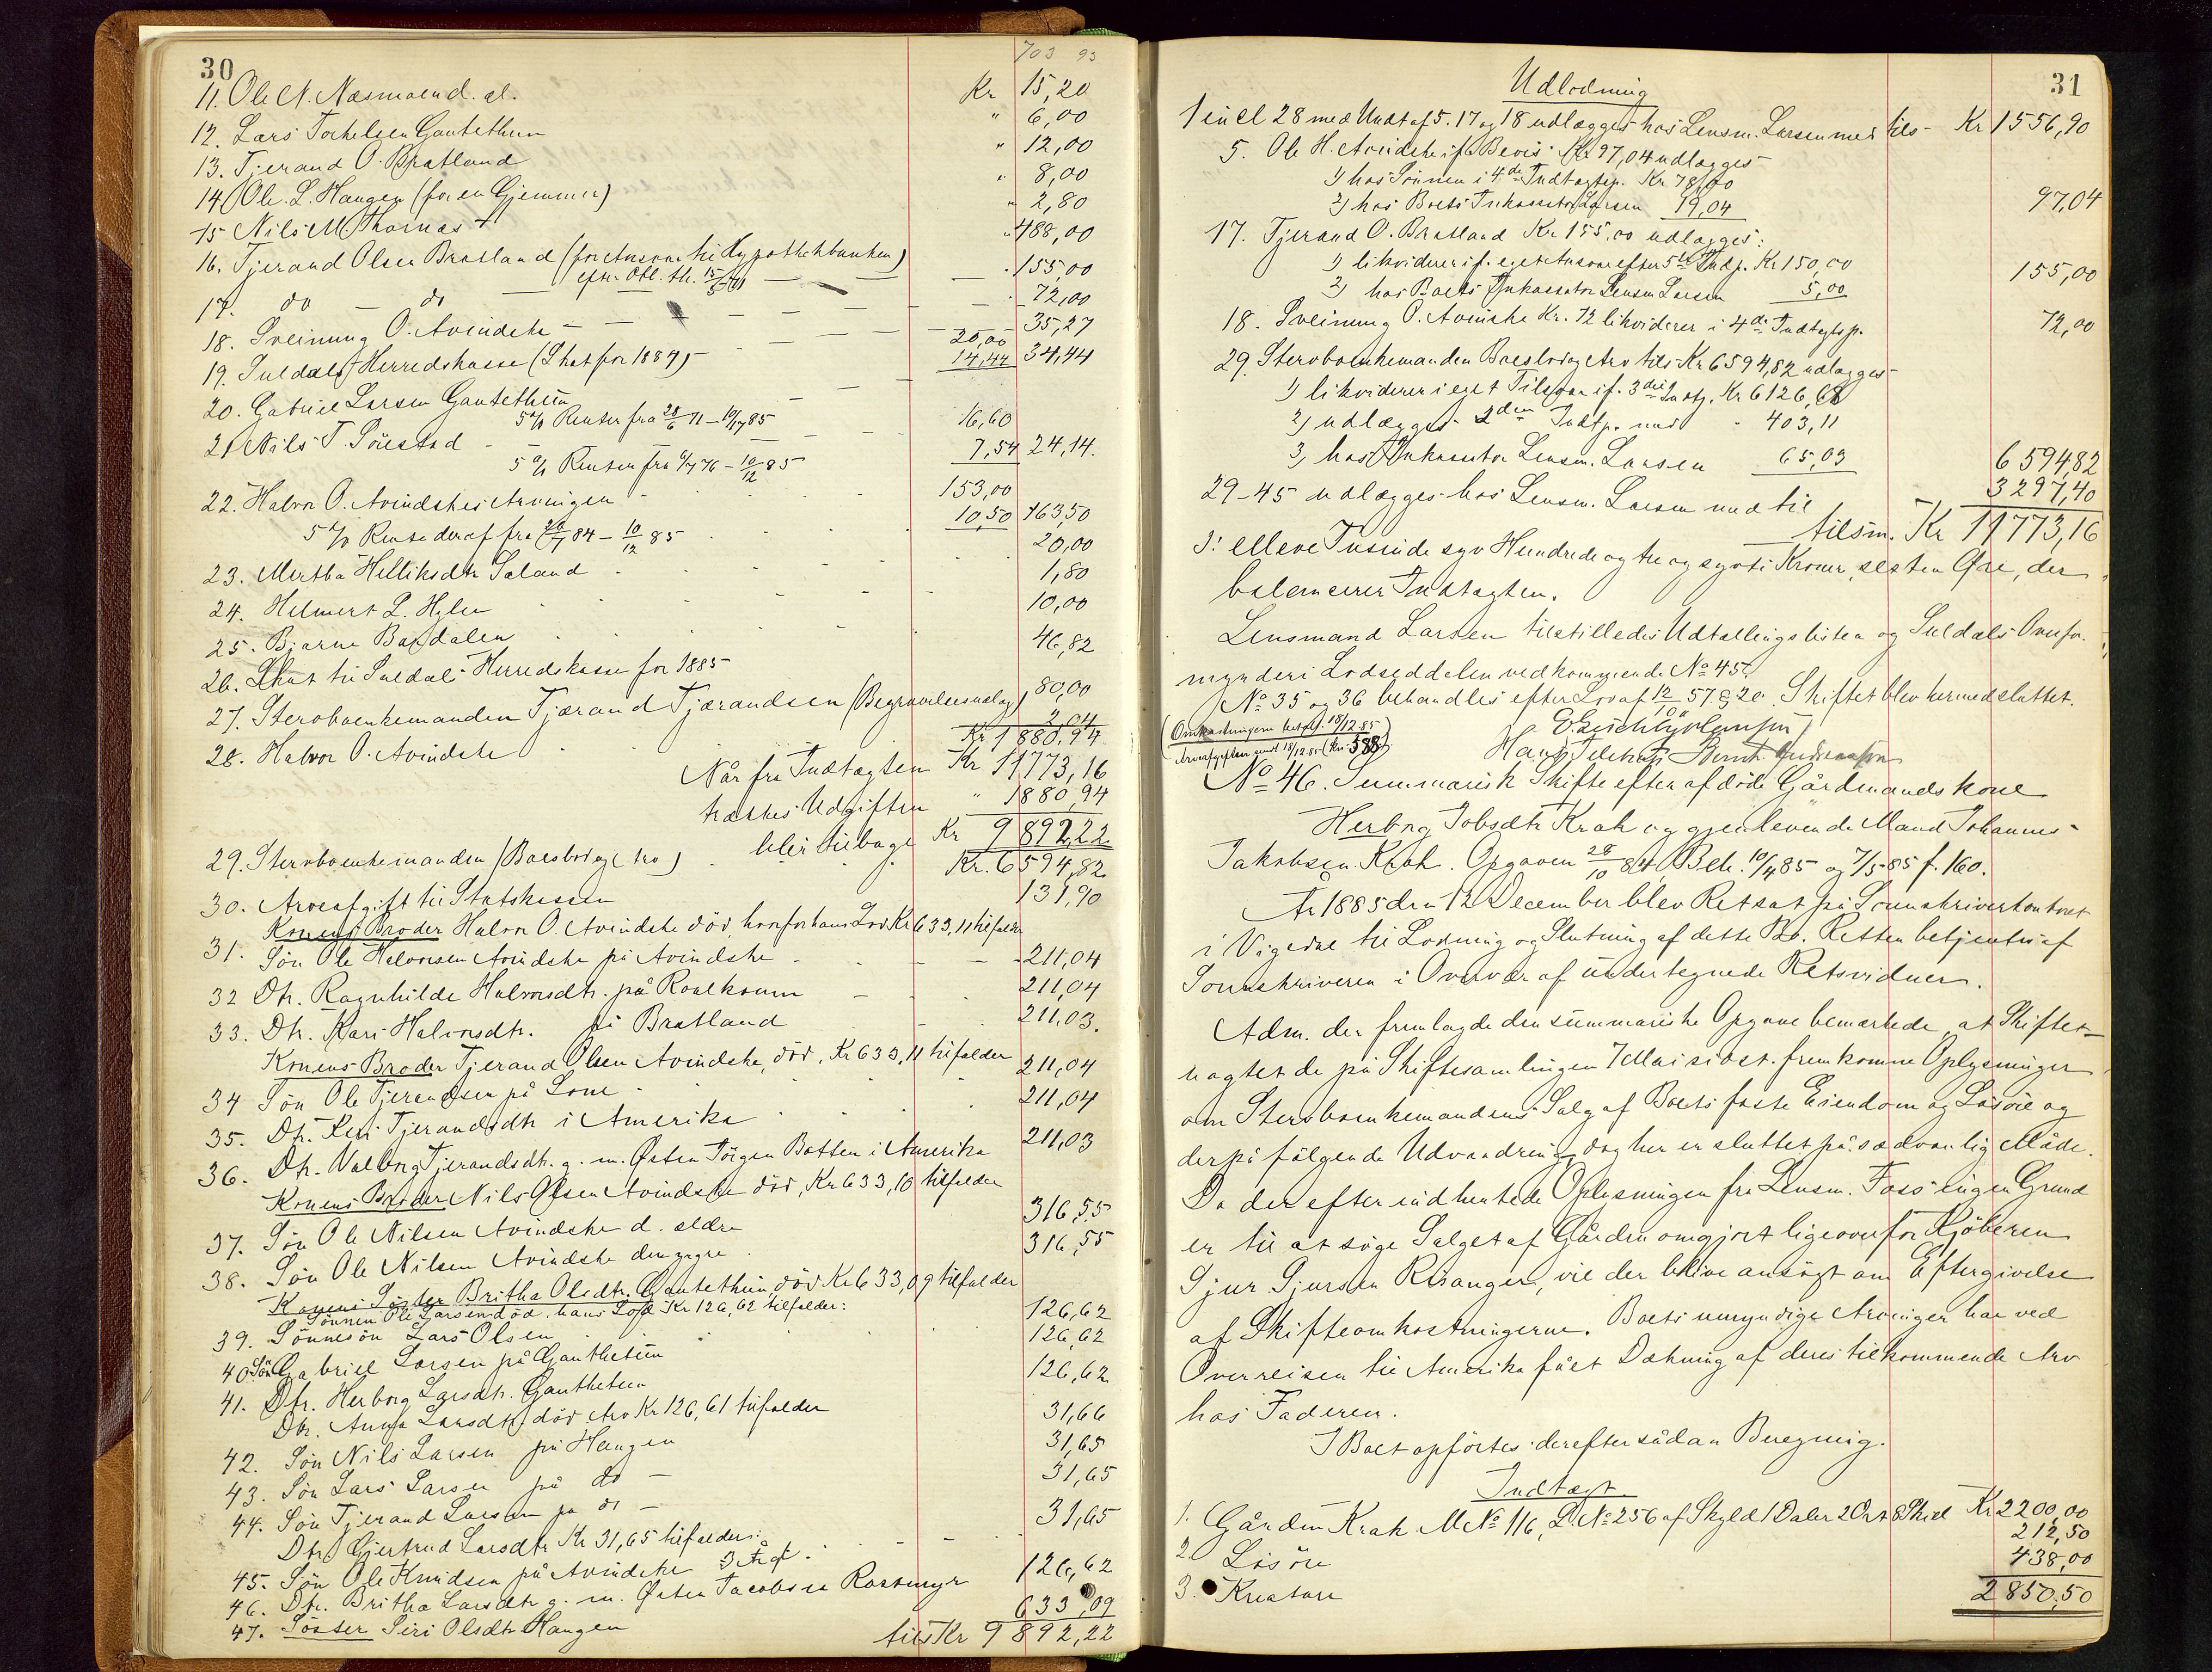 30
703 93
11. Ole N. Næsmoen d. æl. Kr 15,20
12. Lars Torkelsen Gautethun " 6,00
13. Tjerand O. Bratland " 12,00
14 Ole L. Haugen (for en Gjemmer) " 8,00
15 Nils M Thornas " 2,80
16. Tjerand Olsen Bratland (for Ansvar til Hypothekbanken) " 488,00
efter Obl. th. 15/5 71 — " 155,00
17. do — do — — " 72,00
18. Sveinung O. Avindske — — — — 35,27
19. Suldals Herredskasse (Skat for 1884) — — 20,00
20. Gabriel Larsen Gautethun — 14,44 34,44
5 % Renter fra 28/6 71 — 10/12 85
21 Nils T. Söiestad — — — 16,60
5 % Renter fra 6/7 76 — 10/12 85 7,54 24,14.
22. Halvor O. Avindskes Arvinger 153,00
5 % Rente deraf fra 26/7 84 — 10/12 85 10,50 163,50
23. Martha Helliksdtr Saland 20,00
24. Helmert L. Hylen 1,80
25. Bjarne Bardalen 10,00
26. Skat til Suldals Herredskasse for 1885 46,82
27. Stervboenkemanden Tjærand Tjærandsen (Begravelsesudlæg) 80,00
28. Halvor O. Avindske 2,04
Kr 1 880,94
Når fra Indtægten Kr 11773,16
trækkes Udgiften " 1880,94
blir tilbage Kr 9 892,22
29. Stervboenkemanden (Boeslod og Arv) Kr. 6594,82
30. Arveafgift til Statskassen 131,90
Konens Broder Halvor O. Avindske död, hvorfor hans Lod Kr 633,11 tilfalder
31. Sön Ole Halvorsen Avindske på Avindske — — 211,04
32 Dtr. Ragnhilda Halvorsdtr. på Roalkvam — 211,04
33. Dtr. Kari Halvorsdtr. på Bratland 211,03.
Konens Broder Tjerand Olsen Avindske, död, Kr 633,11 tilfalder
34 Sön Ole Tjerandsen på Lone 211,04
35. Dtr. Kari Tjerandsdtr i Amerika 211,04
36. Dtr. Valborg Tjerandsdtr. g. m. Østen Törgen Botten i Amerika 211,03
Konens Broder Nils Olsen Avindske död, Kr 633,10 tilfalder
37. Sön Ole Nilsen Avindske d. ældre 316,55
38. Sön Ole Nilsen Avindske den yngre 316,55
Konens Søster Britha Olsdtr. Gautethun, död. Kr 633,09 tilfalder
Sönnen Ole Larsen död. hans Lod Kr 126,62 tilfalder:
39. Sönnesön Lars Olsen 126,62
40 Sön Gabriel Larsen på Gauthetun 126,62
41. Dtr. Herborg Larsdtr. Gauthetun 126,62
Dtr. Anna Larsdtr, död Arv Kr 126,61 tilfalder
42. Sön Nils Larsen på Haugen 31,66
43. Sön Lars Larsen på do — 31,65
44. Sön Tjerand Larsen på do — 31,65
Dtr. Gjertrud Larsdtr Kr 31,65 tilfalder:
45. Sön Ole Knudsen på Avindske 3 År gl. 31,65
46. Dtr. Britha Larsdtr g. m. Østen Jacobsen Røstmyr 126,62
47. Søster Siri Olsdtr Haugen 633,09
tils Kr 9 892,22
31
Udlodning
1 incl 28 med Undt af 5. 17 og 18 udlægges hos Lensm. Larsen med tils — Kr 1556,90
5. Ole H. Avindske if. Bevis Kr 97,04 udlægges —
1) hos Sönnen i 4de Indtægtsp. Kr. 78,00
2) hos Boets Inkassator Larsen 19,04 97,04
17. Tjerand O. Bratland Kr 155,00 udlægges:
1) likviderer if. eget Ansvar efter 5te Indp. Kr 150,00
2) hos Boets Inkassator Lensm Larsen 5,00 155,00
18. Sveinung O. Avindske Kr. 72 likviderer i 4de Indtægtsp. 72,00
29. Stervboenkemanden Boeslod og Arv tils Kr 6594,82 udlægges —
1) likviderer i eget Tilsvar if. 3die Indtp. Kr 6126,68
2) udlægges 2den Indtp. med " 403,11
3) hos Inkassator Lensm. Larsen 65,03 6 594 82
29–45 udlægges hos Lensm. Larsen med til 3297,40
tilsm. Kr 11773,16
3: elleve Tusinde syv Hundrede og tre og sytti Kroner, seksten Øre, der
balancerer Indtægten.
Lensmand Larsen tilstilledes Udtællingslisten og Suldals Overfor-
mynderi Lodseddelen vedkommende No 45.
No 35 og 36 behandles efter Lov af 12/10 57 § 20. Skiftet blev hermed sluttet.
(Omkostningerne betalt 18/12 85
Arveafgiften sendt 18/12 85 (Kr. 588)
No 46. Summarisk Skifte efter afdöde Gårdmandskone
Herborg Jobsdtr Krak og gjenlevende Mand Johannes
Jakobsen Krak. Opgaven 28/10 84, Beh. 10/4 85 og 7/5 85 f. 160.
År 1885 den 12 December blev Ret sat på Sorenskriverkontoret
i Vigedal til Lodning og Slutning af dette Bo. Retten betjentes af
Sorenskriveren i Overvær af undertegnede Retsvidner.
Adm. der fremlagde den summariske Opgave bemærkede, at Skiftet
uagtet de på Skiftesamlingen 7 Mai sidst. fremkomne Oplysninger
om Stervboenkemandens Salg af Boets faste Eiendom og Lösöre og
derpå fölgende Udvandring, dog her er sluttet på sædvanlig Måde.
Da der efter indhentede Oplysninger fra Lensm. Foss ingen Grund
er til at söge Salget af Gården omgjort ligeoverfor Kjöberen
Sjur Sjursen Risanger, vil der blive ansögt om Eftergivelse
af Skifteomkostningerne. Boets umyndige Arvinger har ved
Overreisen til Amerika fået Dækning af deres tilkommende Arv
hos Faderen.
I Boet opförtes derefter sådan Beregning.
Indtægt
1. Gården Krak M No 116, L No 256 af Skyld 1 Daler 2 Ort 8 Skil Kr 2200,00
2. Lösöre 212,50
3. Kreature 438,00
2 850,50